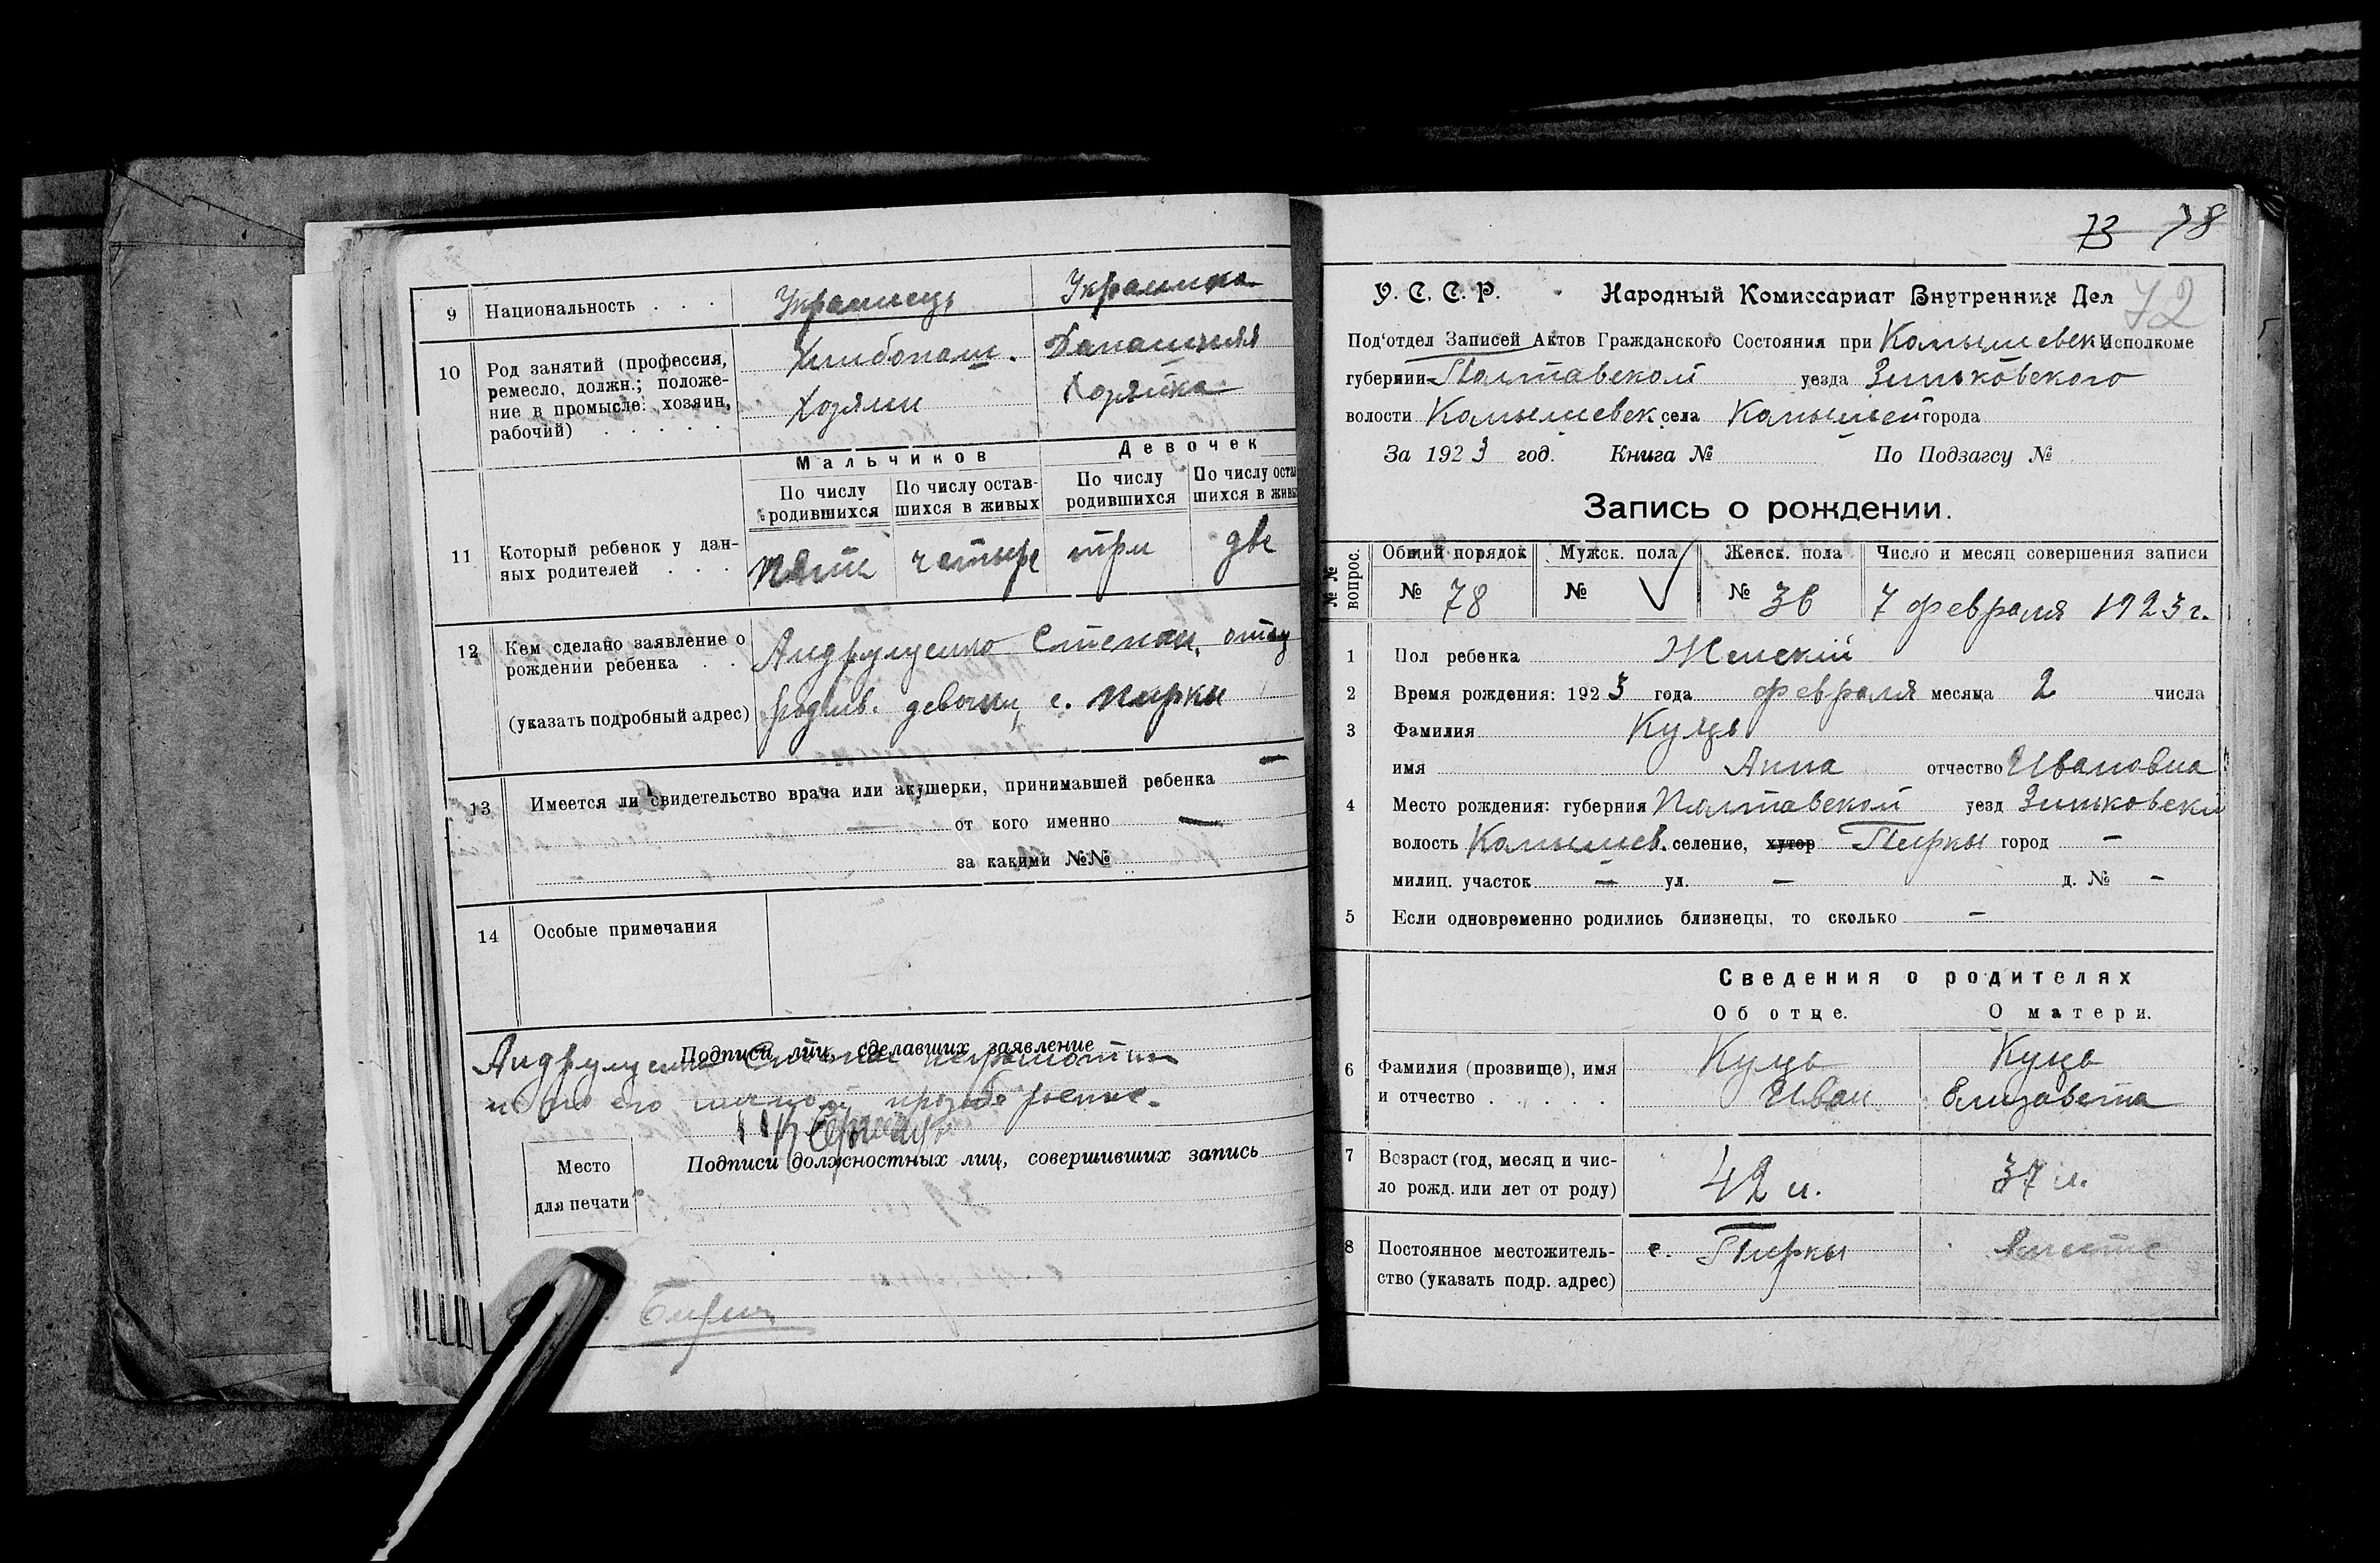 9 Национальность . . . Украинець Украинка
10 Род занятий (профессия, Хлибопаш. Дапашняя
ремесло, должн.; положе-
ние в промысле: хозяин, Хозяин Хозяйка
рабочий) . . . . .
Мальчиков Девочек
По числу родившихся По числу остав- шихся в живых По числу родившихся По числу оста шихся в живы
11 Который ребенок у дан-
ных родителей . . . пять четыре три две
12 Кем сделано заявление о Андрущенко Степан, отец
рождении ребенка . .
(указать подробный адрес) родив. девочки, с. Пирки
13 Имеется ли свидетельство врача или акушерки, принимавшей ребенка —
— от кого именно —
за какими №№
14 Особые примечания
Подписи лиц, сделавших заявление
Андрущенко Степан неграмотный
а по его личной прозьбе росписс.
Место Подписи должностных лиц, совершивших запись
для печати
73 78
У. С. С. Р. Народный Комиссариат Внутренних Дел 72
Под'отдел Записей Актов Гражданского Состояния при Камышевск Исполкоме
губернии Полтавской уезда Зиньковского
волости Камышевск села Камышей города
За 1923 год. Книга № По Подзагсу №
Запись о рождении.
№№ вопрос. Общий порядок Мужск. пола Женск. пола Число и месяц совершения записи
№ 78 № V № 36 7 февраля 1923 г.
1 Пол ребенка Женскій
2 Время рождения: 1923 года февраля месяца 2 числа
3 Фамилия Куць
имя Анна отчество Ивановна
4 Место рождения: губерния Полтавской уезд Зиньковски
волость Камышев. селение, хутор Пирки город —
милиц. участок — ул. — д. № —
5 Если одновременно родились близнецы, то сколько —
Сведения о родителях
Об отце. О матери.
6 Фамилия (прозвище), имя Куць Куць
и отчество . . . . . Иван Елизавета
7 Возраст (год, месяц и чис-
ло рожд. или лет от роду) 42 л. 37 л.
8 Постоянное местожитель- с. Пирки Вместе
ство (указать подр. адрес)